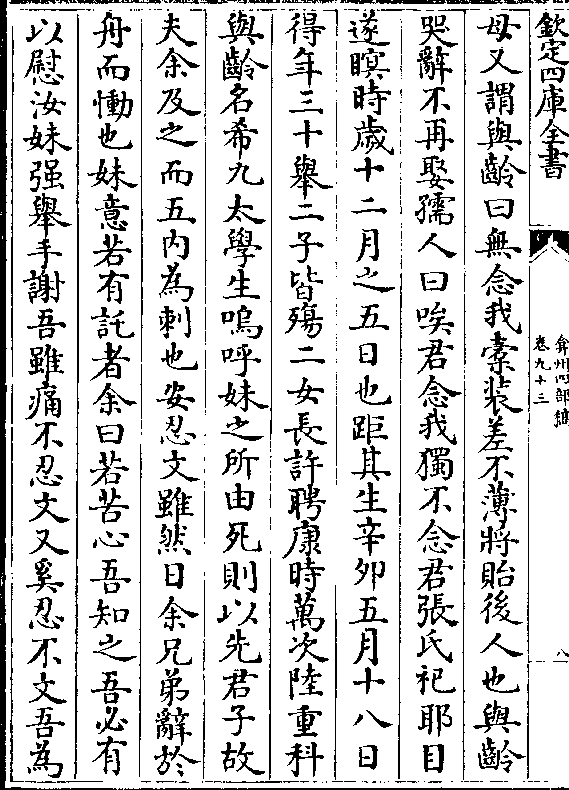 欽定四庫全書
弇州四部稿
卷九十三
八
母又謂與齡曰無念我橐裝差不薄將貽後人也與齡
哭辭不再娶孺人曰唉君念我獨不念君張氏祀耶目
遂瞑時歲十二月之五日也距其生辛夘五月十八日
得年三十舉二子皆殤二女長許聘康時萬次陸重科
與齡名希九太學生嗚呼妹之所由死則以先君子故
夫余及之而五内為刺也安忍文雖然日余兄弟辭於
舟而慟也妹意若有託者余曰若苦心吾知之吾必有
以慰汝妹强舉手謝吾雖痛不忍文又奚忍不文吾為